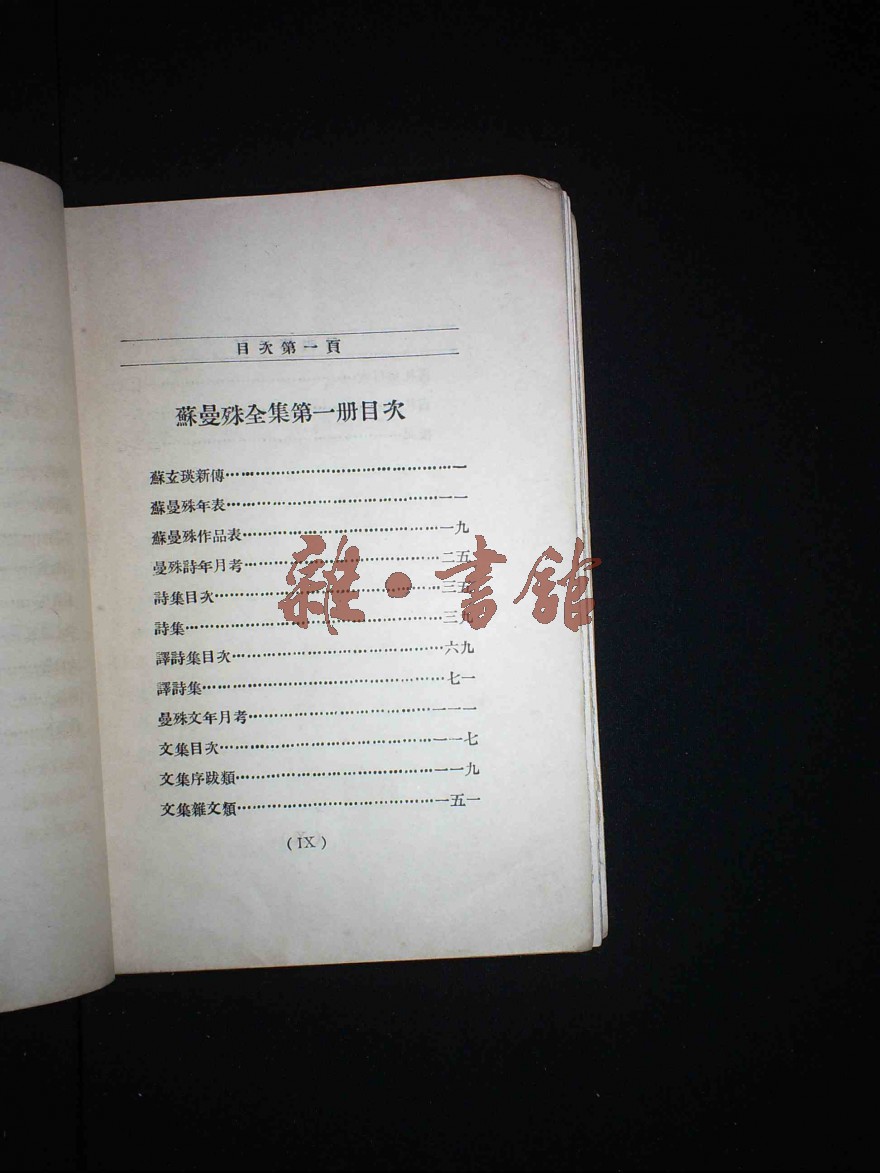 目次第一頁
蘇曼殊全集第一册目次
蘇玄瑛新傳……一
蘇曼殊年表……一一
蘇曼殊作品表……一九
曼殊詩年月考……二五
詩集目次……三五
詩集……三九
譯詩集目次……六九
譯詩集……七一
曼殊文年月考……一一一
文集目次……一一七
文集序跋類……一一九
文集雜文類……一五一
(IX)
雜·書館